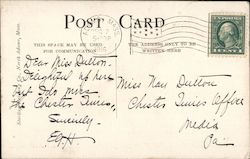 POST CARD
THIS SPACE MAY BE USED
FOR COMMUNICATION
THE ADDRESS ONLY TO BE
WRITTEN HERE
Dear Miss Dutton.
Delightful up here
but I do miss
The Chester Times.
Sincerely
Miss Nan Dutton
Chester Times Office
Media
Pa.
North Adams, Mass.